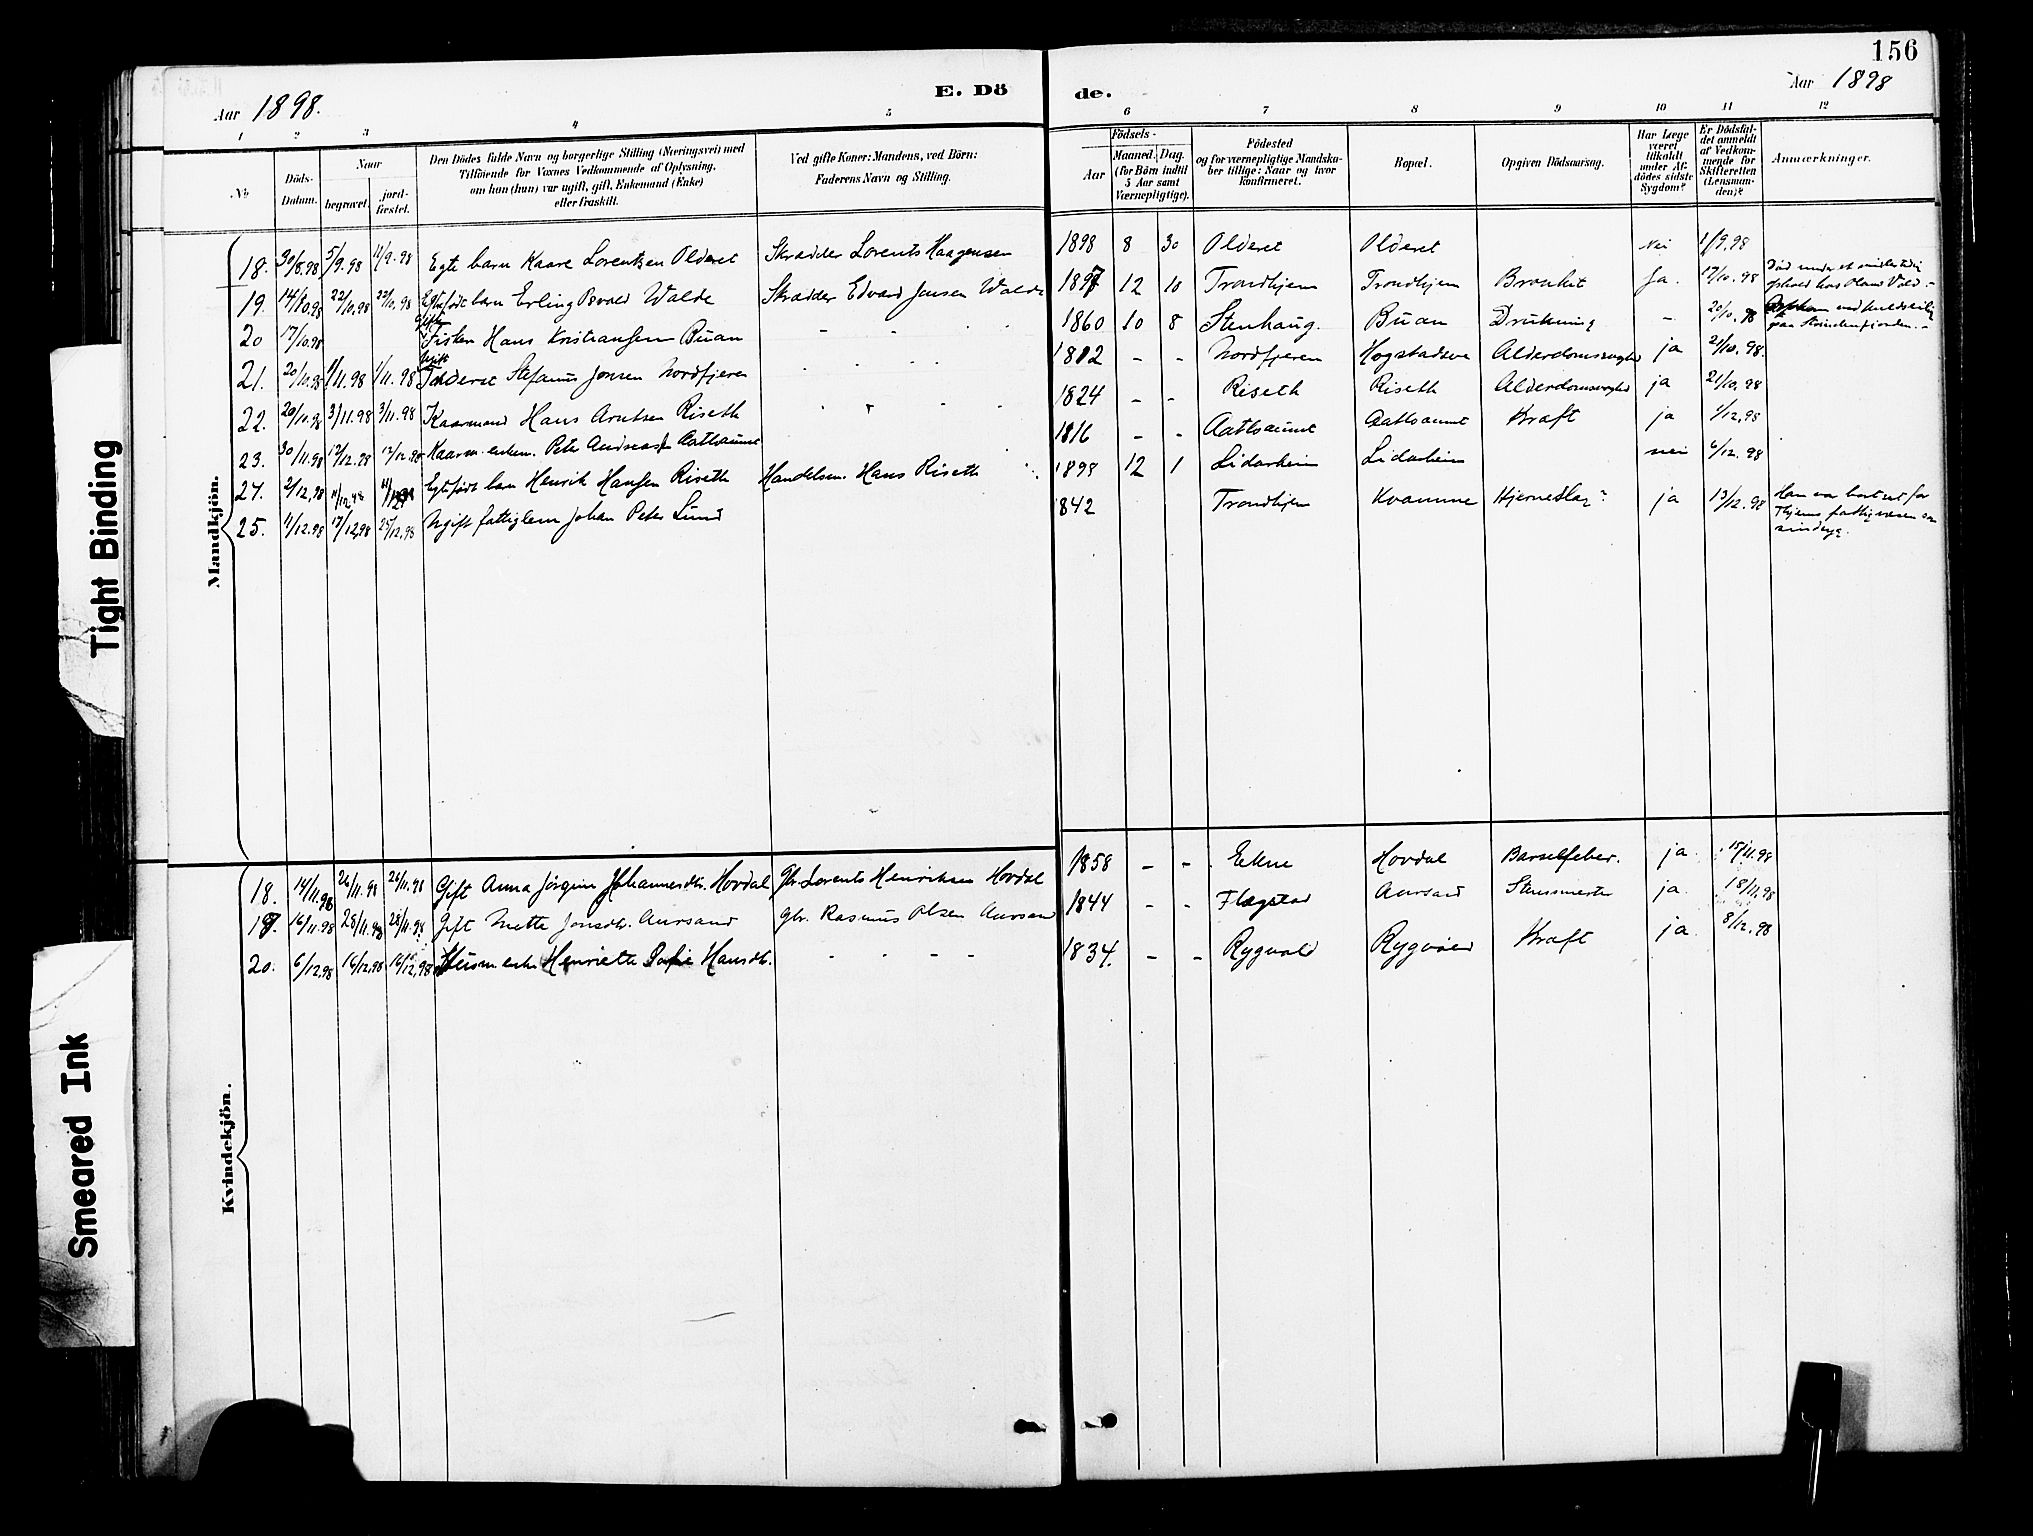 156
Aar 1898.
E. Döde.
Aar 1898
1 2 3 4 5 6 7 8 9 10 11 12
No.
Döds-Datum.
Naar
begravet.
jord-fæstet.
Den Dödes fulde Navn og borgerlige Stilling (Næringsvei) med
Tilföiende for Voxnes Vedkommende af Oplysning,
om han (hun) var ugift, gift, Enkemand (Enke)
eller fraskilt.
Ved gifte Koner: Mandens, ved Börn:
Faderens Navn og Stilling.
Födsels-
Aar
Maaned. Dag.
(for Börn indtil
5 Aar samt
Værnepligtige).
Födested
og for værnepligtige Mandska-
ber tillige: Naar og hvor
konfirmeret.
Bopæl.
Opgiven Dödsaarsag.
Har Læge
været
tilkaldt
under Af-
dödes sidste
Sygdom?
Er Dödsfal-
det anmeldt
af Vedkom-
mende for
Skifteretten
(Lensman-
den)?
Anmærkninger.
Mandkjön.
18. 30/8.98 5/9.98 11/9.98 Egte barn Kaare Lorentsen Olderet Skrædder Lorents Haagensen 1898 8 30 Olderet Olderet Nei 1/9.98
19. 14/10.98 22/10.98 22/10.98 Egtefødt barn Erling Walde Skrædder Edvard Jensen Walde 1897 12 10 Trondhjem Trondhjem Bronkit Ja. 17/10.98 Død under et midlertidig ophold hos
20 17/10.98 Gift Fisker Hans Kristiansen Buan - - - 1860 10 8 Stenhaug. Buan Drukning - 20/10.98 ved kuldseiling paa Strindenfjorden. -
21. 20/10.98 1/11.98 1/11.98 Gift Stefanus Jonsen Nordfjeren - - - 1812 - - Nordfjeren Hogstadsve Alderdomssvaghed ja 21/10.98.
22. 20/10.98 3/11.98 3/11.98 Kaarmand Hans Arntsen Riseth - - - 1824 - - Riseth Riseth Alderdomssvaghed ja 21/10.98
23. 30/11.98 12/12.98 12/12.98 Kaarm. enkem. Peter Andreas Aatlsaunet 1816 - - Aatlsaunet Aatlsaunet Kræft ja 1/12.98
24. 2/12.98 11/12.98 11/12.98 Egtefødt barn Henrik Hansen Riseth Handelsm. Hans Riseth 1898 12 1 Lidarheim Lidarheim nei 6/12.98
25. 11/12.98 17/12.98 25/12.98 Ugift fattiglem Johan Peter Lund 1842 Trondhjem Kvamme Hjerneslag? ja 13/12.98 Han var bortsat for Thjems fattigvæsen som sindssyg.
Kvindekjön.
18. 14/11.98 26/11.98 26/11.98 Gift Anna Jørgine Johannesdtr. Hovdal Gbr. Lorents Henriksen Hovdal 1858 - - Ekne Hovdal Barselfeber. ja. 15/11.98
19. 16/11.98 28/11.98 28/11.98 Gift Mette Jonsdtr. Aursand Gbr. Rasmus Olsen Aursand 1844 - - Flægstad Aursand Stensmerter ja. 18/11.98
20. 6/12.98 16/12.98 16/12.98 Husm. enke Henriette Sofie Hansdtr. - - - - 1834. - - Rygvold Rygvold Kræft ja. 8/12.98
Tight Binding
Smeared Ink